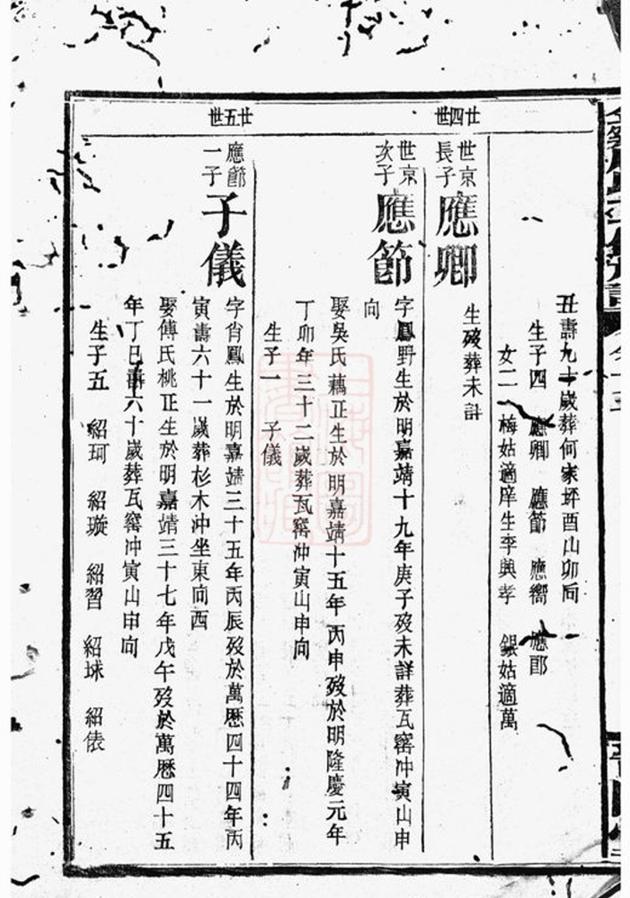 丑壽九十歲葬何家坪酉山卯向
生子四 應卿 應節 應嚮 應郎
女二 梅姑適庠生李興孝 銀姑適萬
廿四世
世京長子 應卿
生歿葬未詳
世京次子 應節
字鳳野生於明嘉靖十九年庚子歿未詳葬瓦窰冲寅山申
向
娶吳氏藕正生於明嘉靖十五年丙申歿於明隆慶元年
丁卯年三十二歲葬瓦窰冲寅山申向
生子一 子儀
廿五世
應節一子 子儀
字肖鳳生於明嘉靖三十五年丙辰歿於萬厯四十四年丙
寅壽六十一歲葬杉木沖坐東向西
娶傅氏桃正生於明嘉靖三十七年戊午歿於萬厯四十五
年丁巳壽六十歲葬瓦窰冲寅山申向
生子五 紹珂 紹璇 紹習 紹球 紹俵